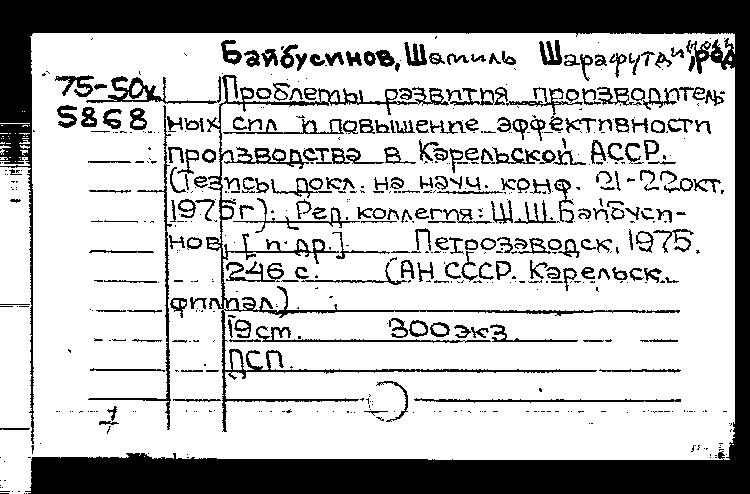 Байбусинов, Шамиль Шарафутдинович, ред.
75-50к Проблемы развития производитель-
5868 ных сил и повышение эффективности
производства в Карельской АССР.
(Тезисы докл. на науч. конф. 21-22 окт.
1975г). [Ред. коллегия: Ш.Ш. Байбуси-
нов, [и др.] Петрозаводск, 1975.
246 с. (АН СССР. Карельск.
филиал)
19 см. 300 экз.
ДСП.
1